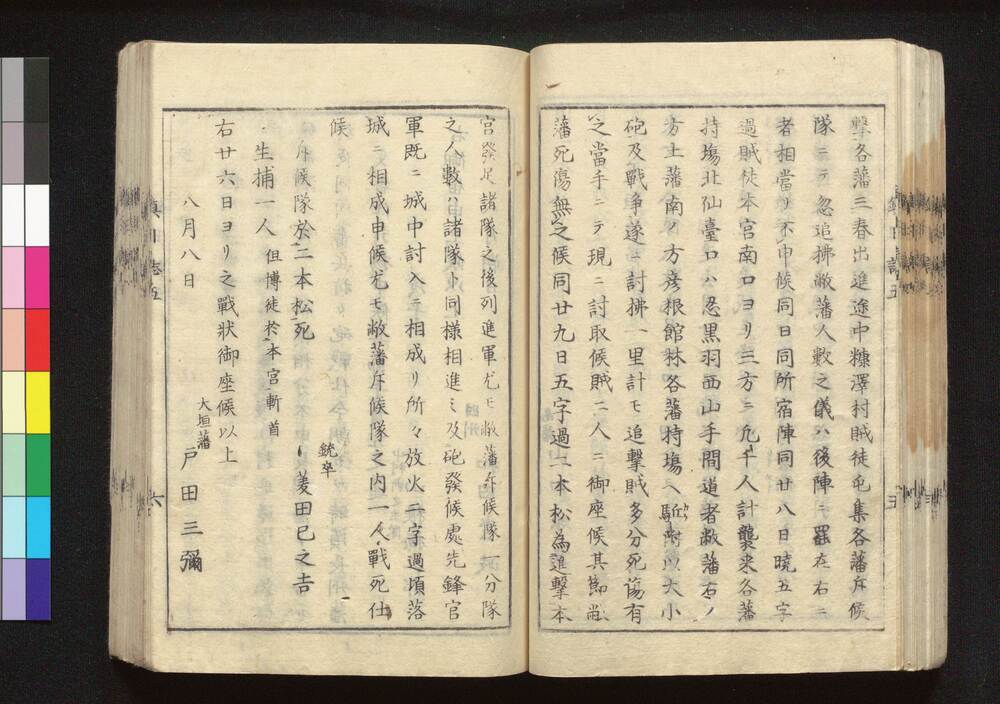 撃各藩三春出進途中糠澤村賊徒屯集各藩斥候
隊ニテ忽追拂敝藩人數之儀ハ後陣ニ罷在右ニ
者相當リ不申候同日同所宿陣同廿八日曉五字
過賊徒本宮南口ヨリ三方ニ凢千人計襲来各藩
持場北仙臺口ハ忍黒羽西山手間道者敝藩右ノ
方土藩南ノ方彦根館林各藩持場ヘ馳附以大小
砲及戦争遂ニ討拂一里計モ追撃賊多分死傷有
之當手ニテ現ニ討取候賊二人ニ御座候其節敝
藩死傷無之候同廿九日五字過二本松為進撃本
宮發足諸隊之後列進軍尤モ敝藩斥候隊一分隊
之人數ハ諸隊ト同様相進ミ及砲發候處先鋒官
軍既ニ城中討入ニ相成リ所々放火二字過頃落
城ニ相成申候尤モ敝藩斥候隊之内一人戦死仕
候
斥候隊於二本松死 銃卒 菱田巳之吉
一生捕一人 但博徒於本宮斬首
右廿六日ヨリ之戰状御座候以上
八月八日 大垣藩 戸田三彌
六